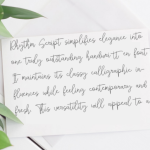 Rhythm Script simplifies elegance into
one truly outstanding handwritten font
It maintains its classy calligraphic in-
fluences while feeling contemporary and
fresh. This versatility will appeal to a